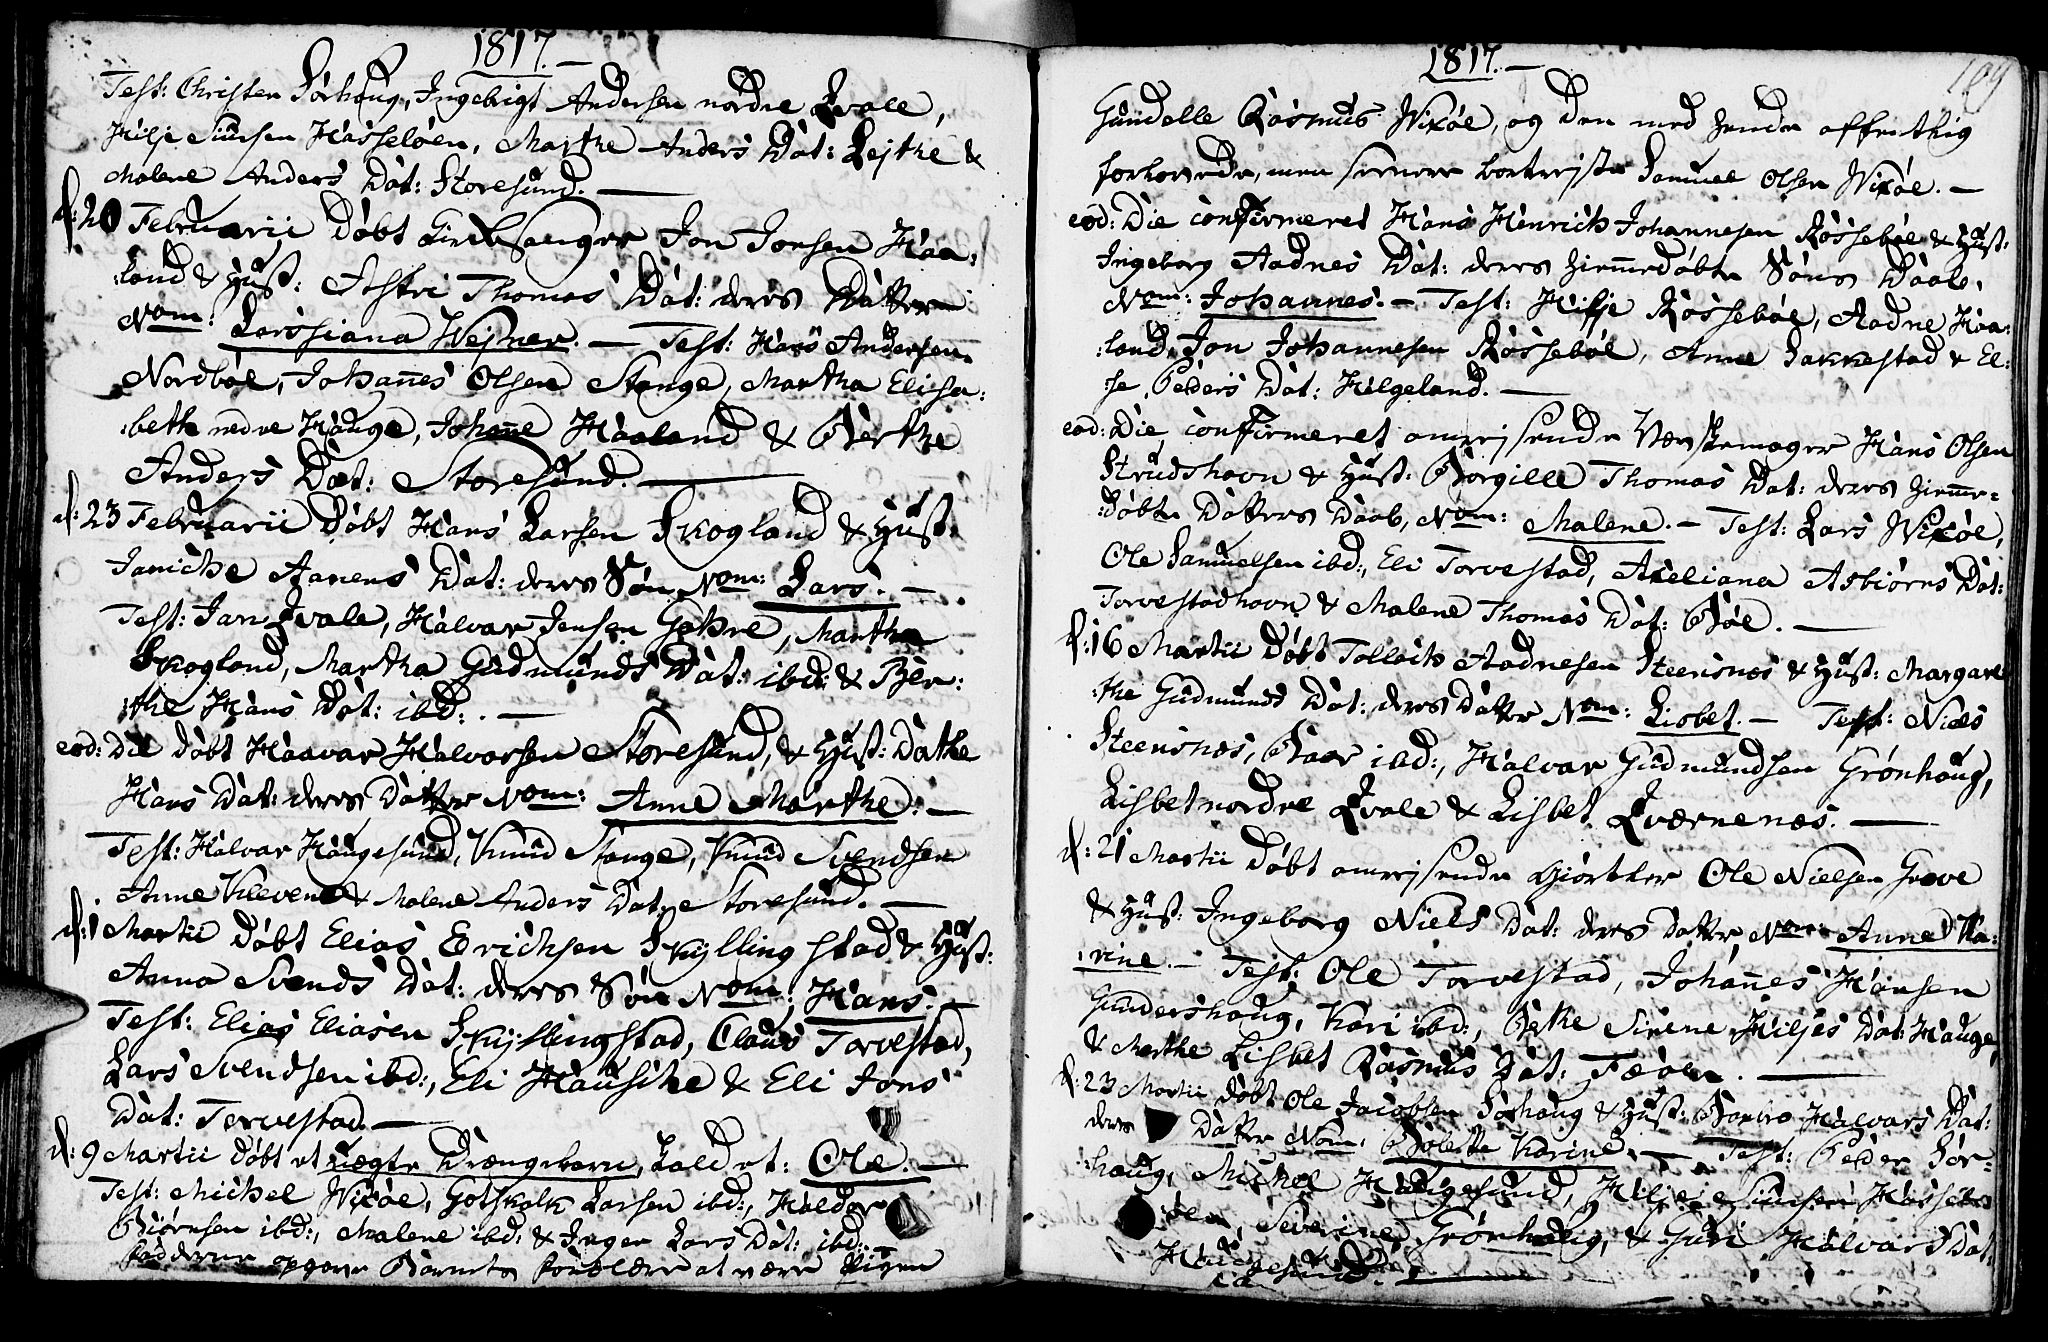 1817.
Test: Christen Sørhaug, Ingebrigt Andersen nordre Qvale,
Hilje Siursen Hasseløen, Marthe Anders Dat: Lejthe &
Malene Anders Dat: Storesund.
d: 20 Februarii Døbt Kirkesanger Jon Jonsen Haa:
:land & Hust: Astri Thomas Dat: deres Datter
Nom: Larssiana Wejner. — Test: Hans Andersen
Nordbøe, Johannes Olsen Stange, Martha Elisa:
:beth nedre Hauge, Johanne Haaland & Berthe
Anders Dat: Storesund.
d: 23 Februarii Døbt Hans Larsen Skogland & Hust:
Janiche Aanens Dat: deres Søn Nom: Lars. —
Test: Jan Qvale, Halvar Jensen Gahre, Martha
Skogland, Martha Gudmunds Dat: ibd: & Ber:
:the Hans Dat: ibd: . —
eod: Die Døbt Haavar Halvorsen Storesund, & Hust: Dathe
Hans Dat: deres Datter Nom: Anne Marthe. —
Test: Halvar Haugesund, Knud Stange, Knud Svendsen
Anne Kleven & Malene Anders Dat: Storesund. —
d: 1 Martii Døbt Elias Erichsen Skyllingstad & Hust:
Anna Svends Dat: deres Søn Nom: Hans. —
Test: Elias Eliasen Skyllingstad, Claus Torvestad,
Lars Svendsen ibd:, Eli Hauske & Eli Jons
Dat: Torvestad. —
d: 9 Martii Døbt et uægte Drængebarn, kaldet: Ole. —
Test: Michel Wixøe, Gotskalk Larsen ibd:, Haldor
Biørnsen ibd:, Malene ibd: & Inger Lars Dat: ibd:
Fadderne opgave Barnets Forældre at være Pigen
1817. —
109
Gundelle Rasmus Wixøe, og den med hende offentlig
forlovede, men siden bortrejste Samuel Olsen Wixøe. —
eod: Die confirmeret Hans Henrich Johannesen Røssebøe & Hust:
Ingeborg Aadnes Dat: deres hjemmedøbte Søns Daab,
Nom: Johannes. — Test: Hilje Røssebøe, Aadne Haa:
:land, Jon Johannesen Røssebøe, Anne Sakkestad & El:
:se Peders Dat: Helgeland. —
eod: Die, confirmeret omrejsende Væverskemager Hans Olsen
Strudshavn & Hust: Borgille Thomas Dat: deres hjemme:
:døbte Datters Daab, Nom: Malene. — Test: Lars Wixøe,
Ole Samuelsen ibd:, Eli Torvestad, Axeliana Asbiørns Dat:
Torvestadhavn & Malene Thomas Dat: Bøe. —
d: 16 Martii Døbt Tolleich Aadnesen Steensnes & Hust: Margare:
:the Gudmunds Dat: deres Datter Nom: Lisbet. — Test: Niels
Steensnes, Baar ibd:, Halvar Gudmundsen Grønhaug,
Lisbet nordre Qvale & Lisbet Qværnenæs. —
d: 21 Martii Døbt omrejsende Giørtler Ole Nielsen Grove
& Hust: Ingeborg Niels Dat: deres Datter Nom: Anne Ka:
:rine. — Test: Ole Torvestad, Johannes Hansen
Gundershaug, Kari ibd:, Bethe Sirene Hiljes Dat: Hauge,
& Marthe Lisbet Rasmus Dat: Fæøen. —
d: 23 Martii Døbt Ole Jacobsen Sørhaug & Hust: Barbro Halvars Dat:
deres Datter Nom: Bolette Karine. — Test: Peder Sør:
:haug, Michel Haugesund, Hilje Siursen Hassel:
:øen, Severine Grønhaug, & Guri Halvars Dat:
Haugesund. —